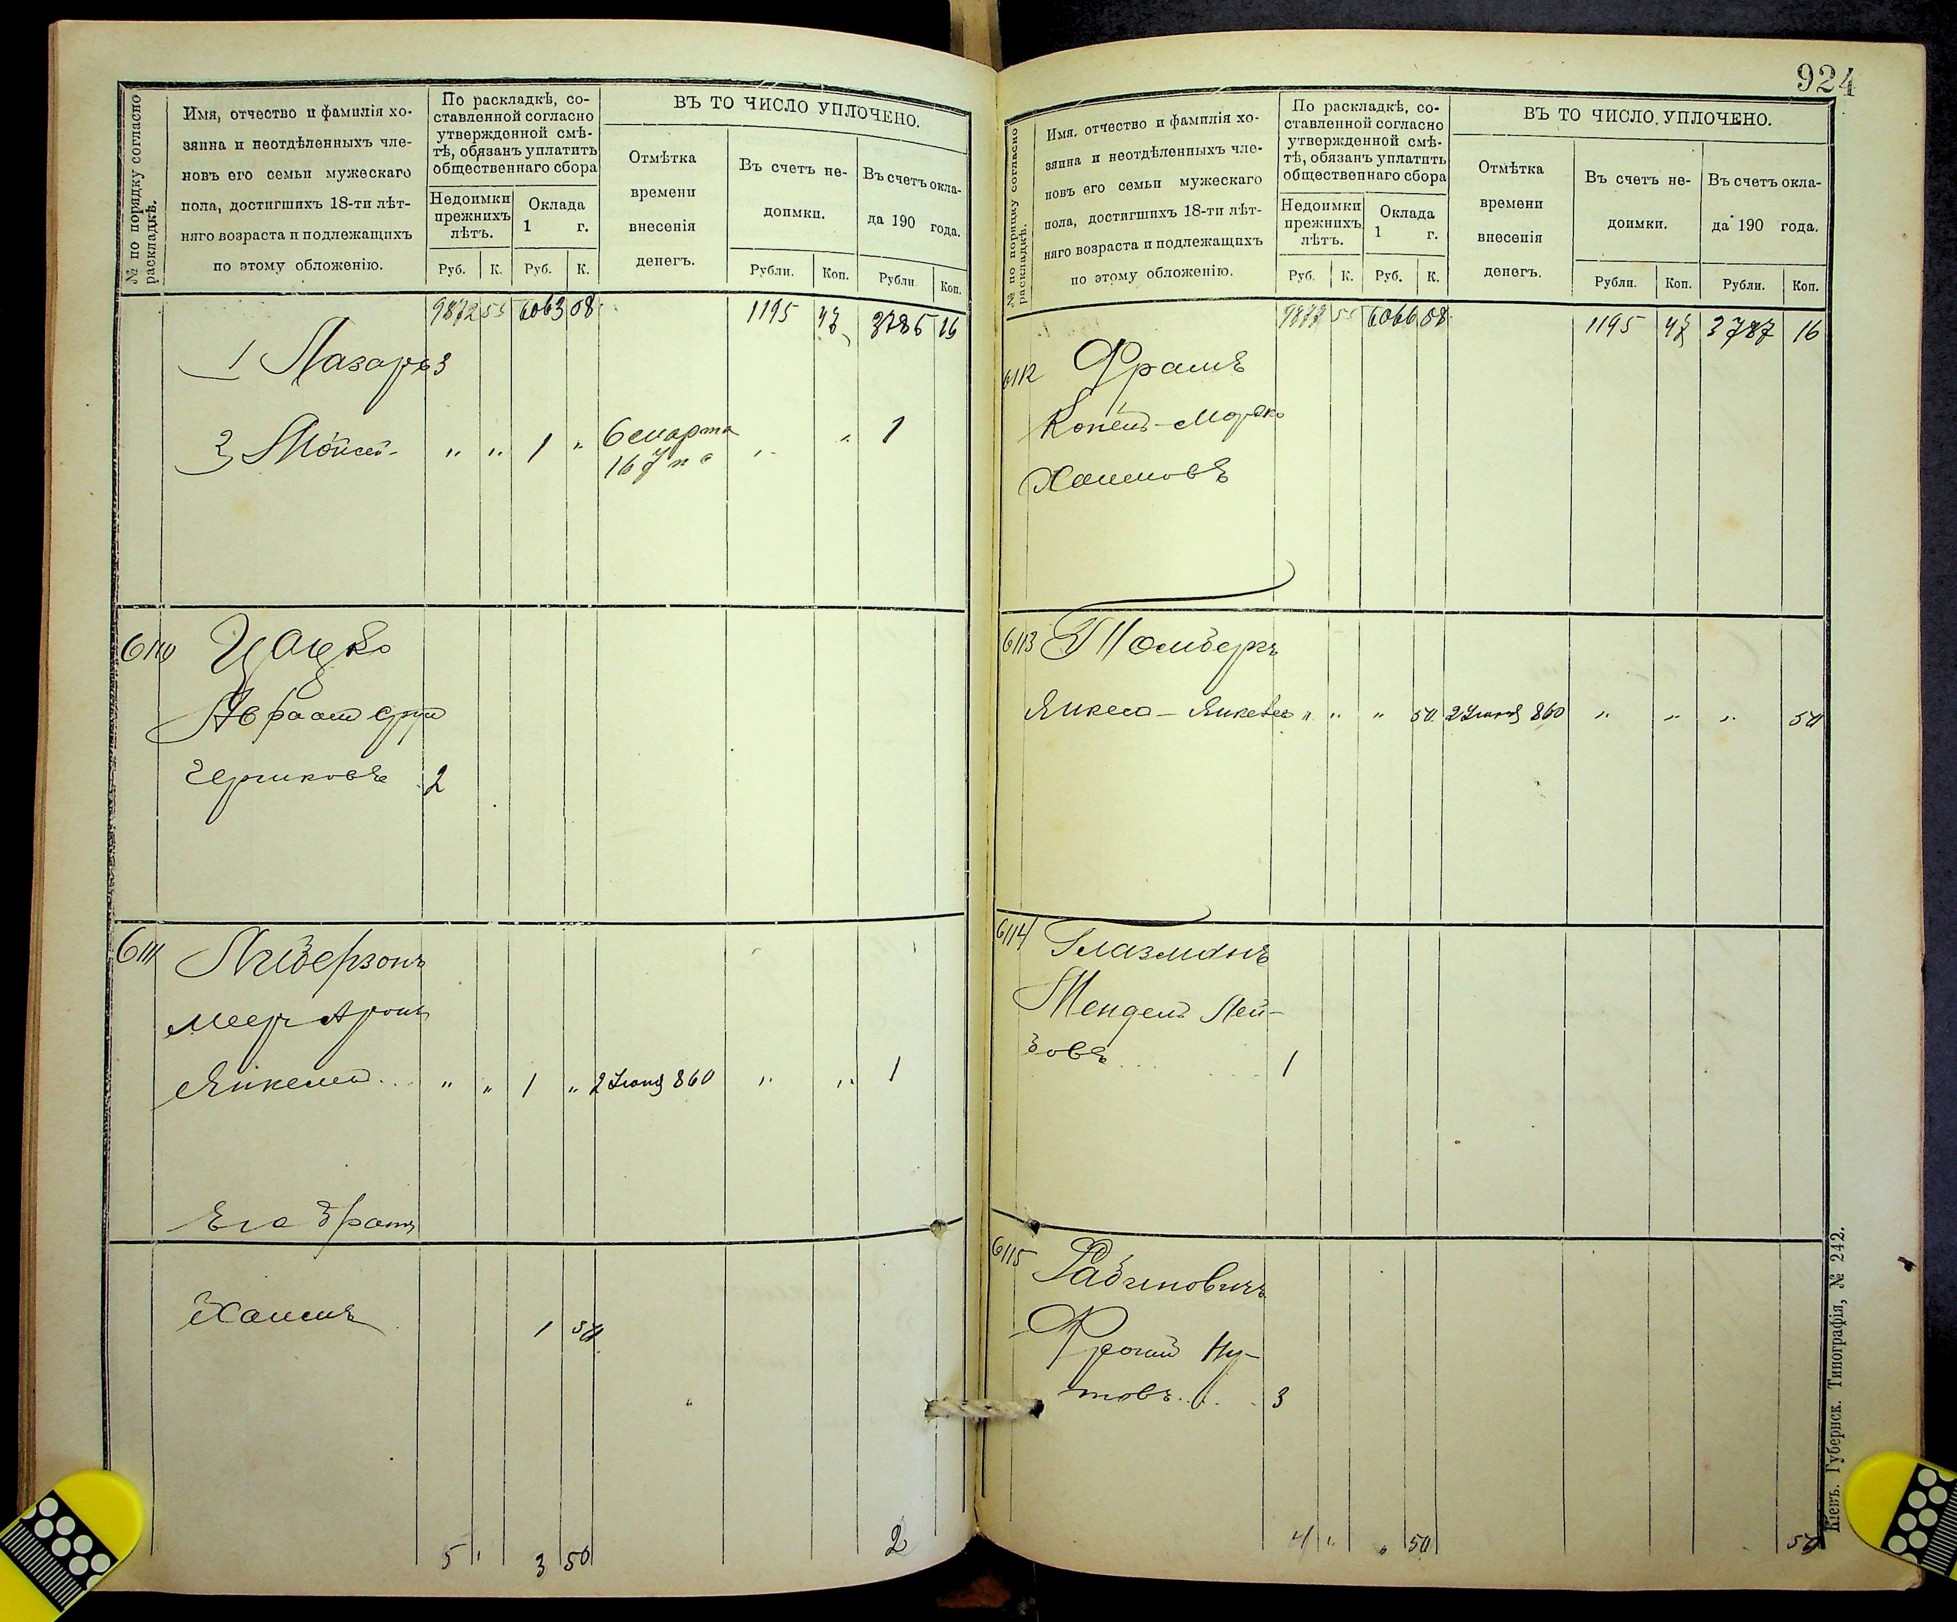 № по порядку согласно раскладкѣ.
Имя, отчество и фамилія хо-
зяина и неотдѣленныхъ чле-
новъ его семьи мужескаго
пола, достигшихъ 18-ти лѣт-
няго возраста и подлежащихъ
по этому обложенію.
По раскладкѣ, со-
ставленной согласно
утвержденной смѣ-
тѣ, обязанъ уплатить
общественнаго сбора
Недоимки
прежнихъ
лѣтъ.
Оклада
1 г.
Руб. К. Руб. К.
ВЪ ТО ЧИСЛО УПЛОЧЕНО.
Отмѣтка
времени
внесенія
денегъ.
Въ счетъ не-
доимки.
Въ счетъ окла-
да 190 года.
Рубли. Коп. Рубли Коп.
9872 55 6063 08 1195 47 3785 16
1 Лазарь 3
2 Мойсей - „ „ 1 „ 6 марта „ „ 1
167
6110
Авраам
Гершковъ 2
6111
Меер Арон
Янкелев... „ „ 1 „ 2 860 „ „ 1
Его братъ
Хаимъ 1 50
5 " 3 50 2
924
№ по порядку согласно раскладкѣ.
Имя, отчество и фамилія хо-
зяина и неотдѣленныхъ чле-
новъ его семьи мужескаго
пола, достигшихъ 18-ти лѣт-
няго возраста и подлежащихъ
по этому обложенію.
По раскладкѣ, со-
ставленной согласно
утвержденной смѣ-
тѣ, обязанъ уплатить
общественнаго сбора
Недоимки
прежнихъ
лѣтъ.
Оклада
1 г.
Руб. К. Руб. К.
ВЪ ТО ЧИСЛО УПЛОЧЕНО.
Отмѣтка
времени
внесенія
денегъ.
Въ счетъ не-
доимки.
Въ счетъ окла-
да 190 года.
Рубли. Коп. Рубли. Коп.
9877 55 6066 58 1195 47 3787 16
6112 Фрамъ
Копель-Мордко
Хаимовъ
6113
„ „ „ 50 2 860 „ „ „ 50
6114 Глазманъ
Мендель Лей-
бовъ 1
6115 Рабиновичъ
Фроим Ну-
товъ 3
4 " „ 50 50
Кіевъ. Губернск. Типографія, № 242.